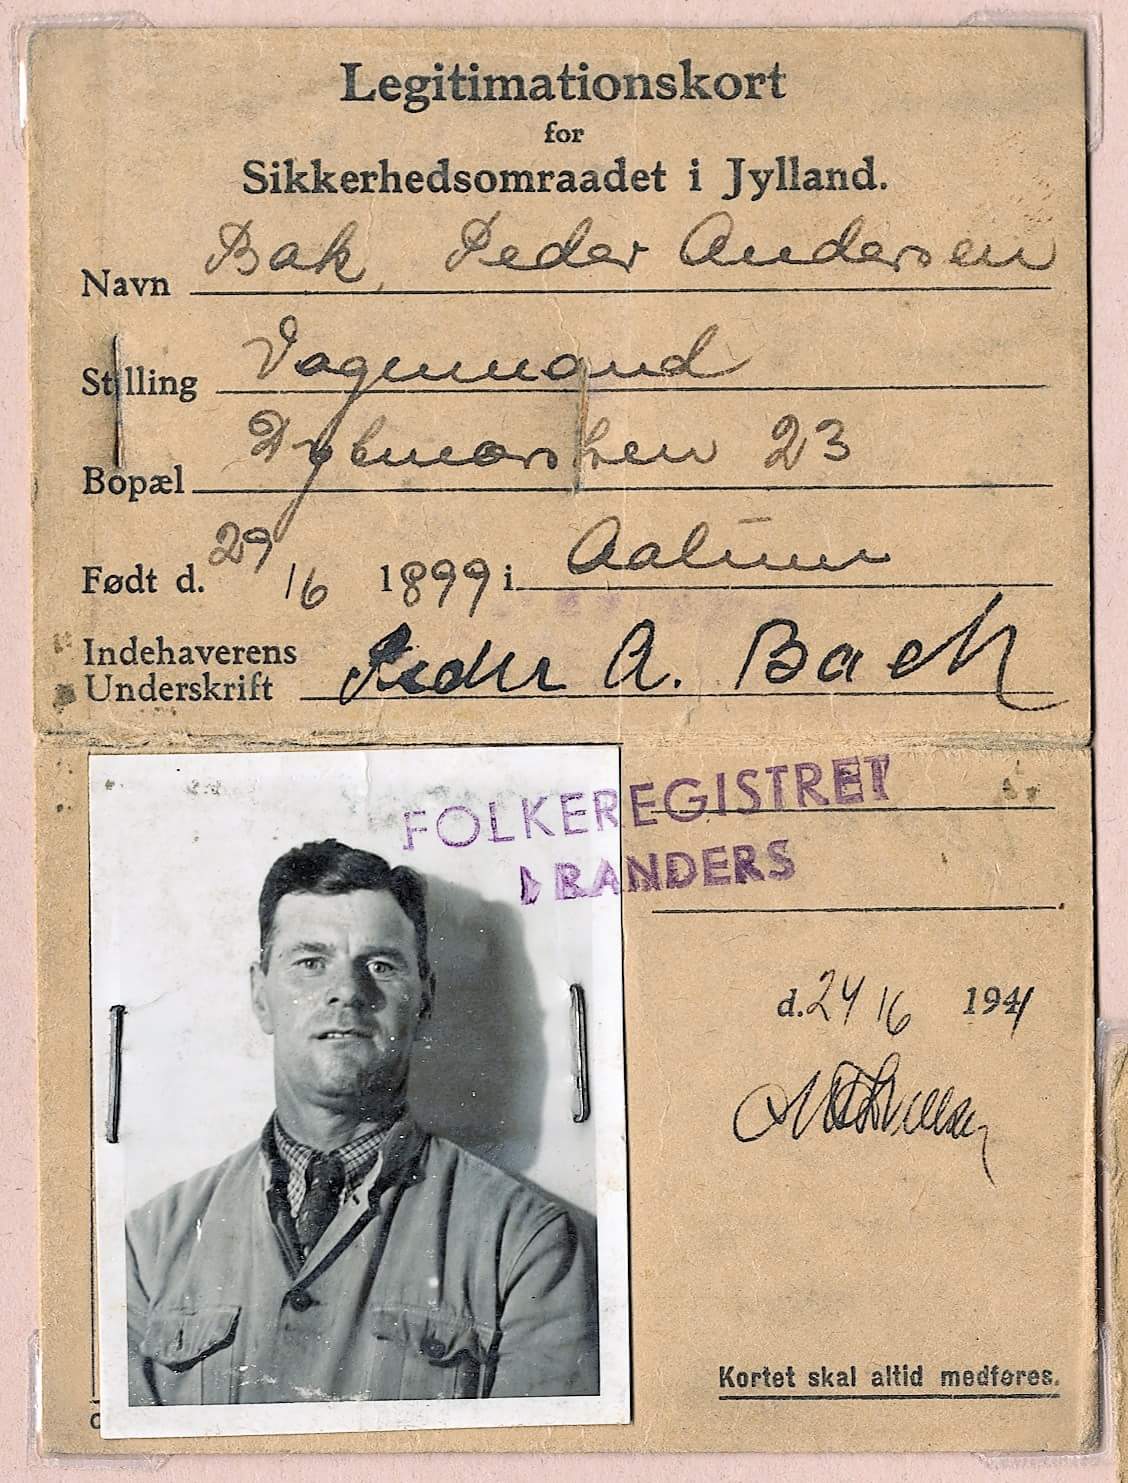 Legitimationskort
for
Sikkerhedsomraadet i Jylland.
Navn Bak, Peder Andersen
Stilling Vognmand
Bopæl 23
Født d. 29/6 1899 i Aalum
Indehaverens
Underskrift Peder A. Bach
FOLKEREGISTRET
I RANDERS
d. 24/6 1941
Kortet skal altid medføres.